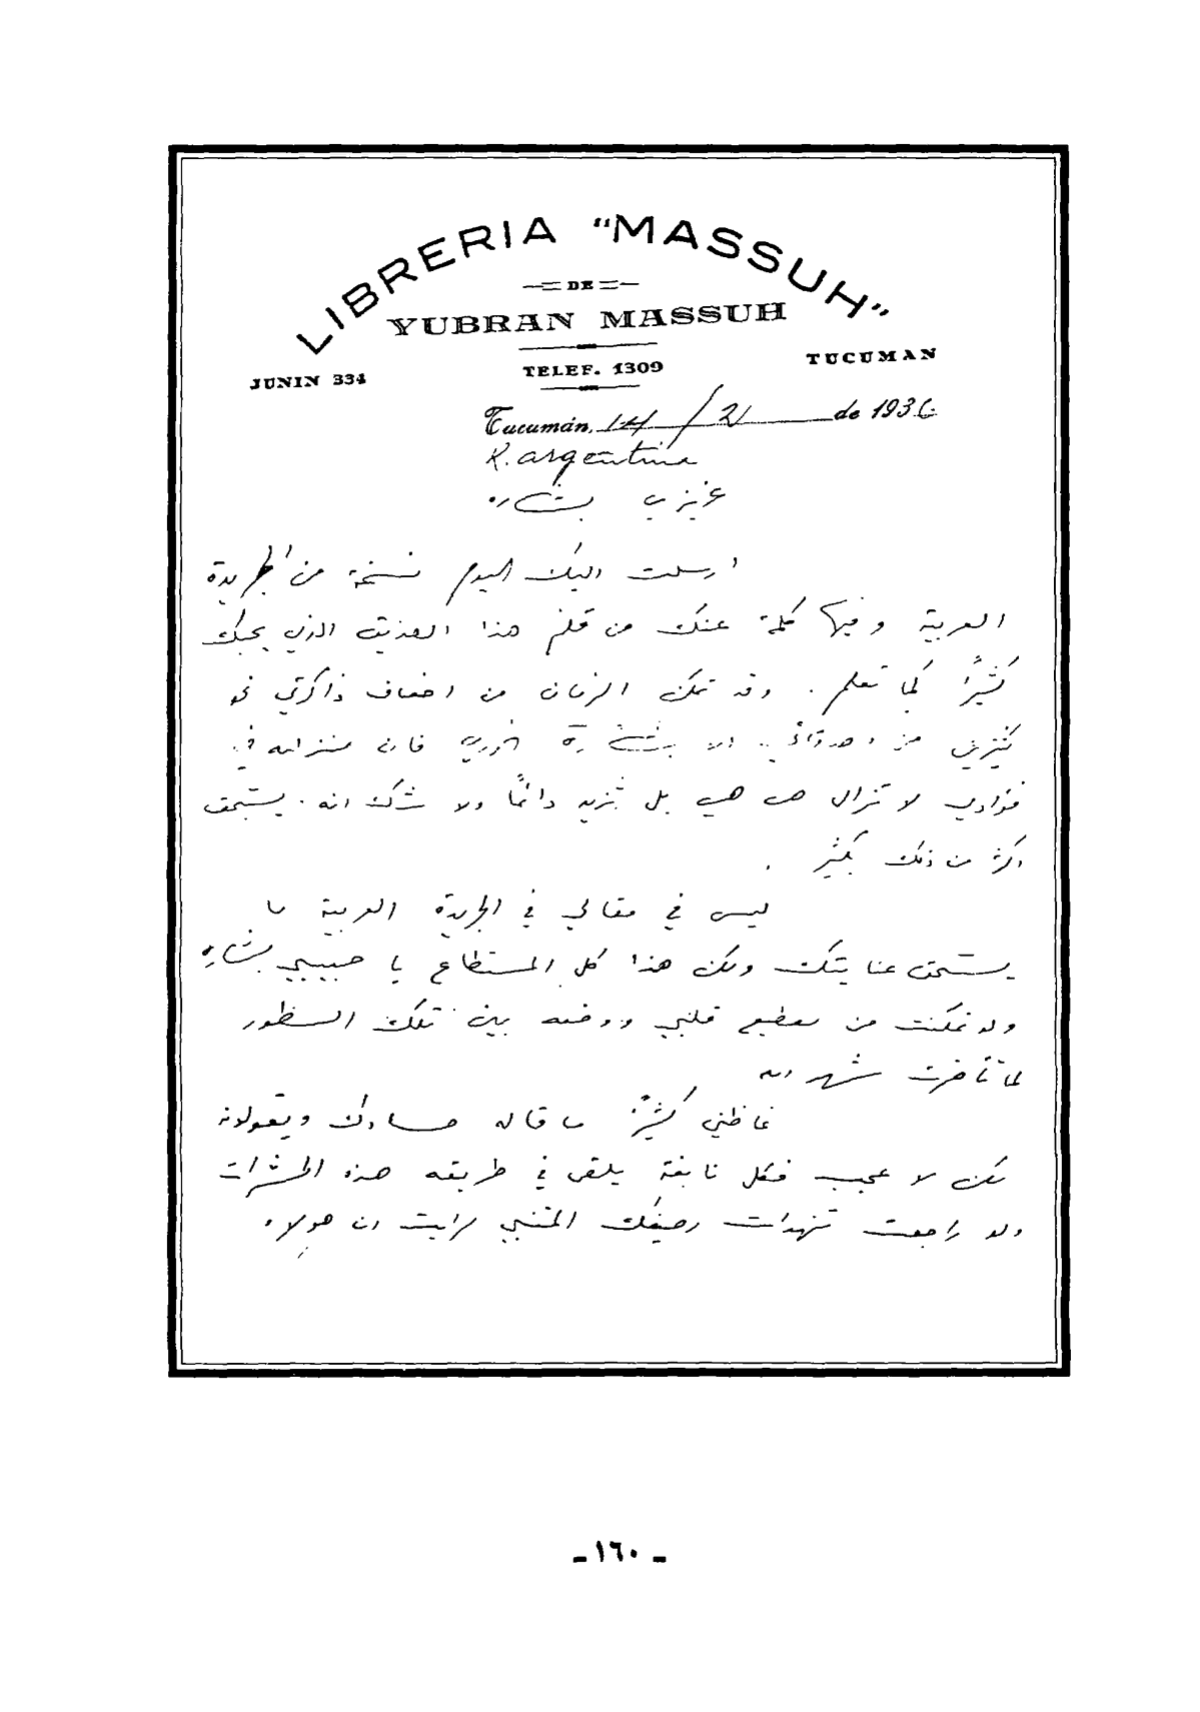 LIBRERIA "MASSUH"
DE
YUBRAN MASSUH
JUNIN 334 TELEF. 1309 TUCUMAN
Tucumán, 14/2 de 1936
R. argentina
عزيزي بشاره
ارسلت اليك اليوم نسخة من الجريدة
العربية وفيها كلمة عنك من قلم هذا الصديق الذي يحبك
كثيرًا كما تعلم. وقد تمكن الزمان من اضعاف ذاكرتي نحو
كثيرين من اصدقائي الا بشارة الخوري فان منزلته في
فؤادي لا تزال هي هي بل تزيد دائمًا ولا شك انه يستحق
اكثر من ذلك بكثير.
ليس في مقالي في الجريدة العربية ما
يستحق عنايتك ولكن هذا كل المستطاع يا حبيبي بشاره
ولو تمكنت من تقطيع قلبي ووضعه بين تلك السطور
لما تأخرت شهد الله
غاظني كثيرًا ما قاله حسادك ويقولونه
لكن لا عجب فكل نابغة يلقى في طريقه هذه الحشرات
ولو راجعت تنهدات رصيفك المتنبي لرايت ان هولاء
- ١٦٠ -